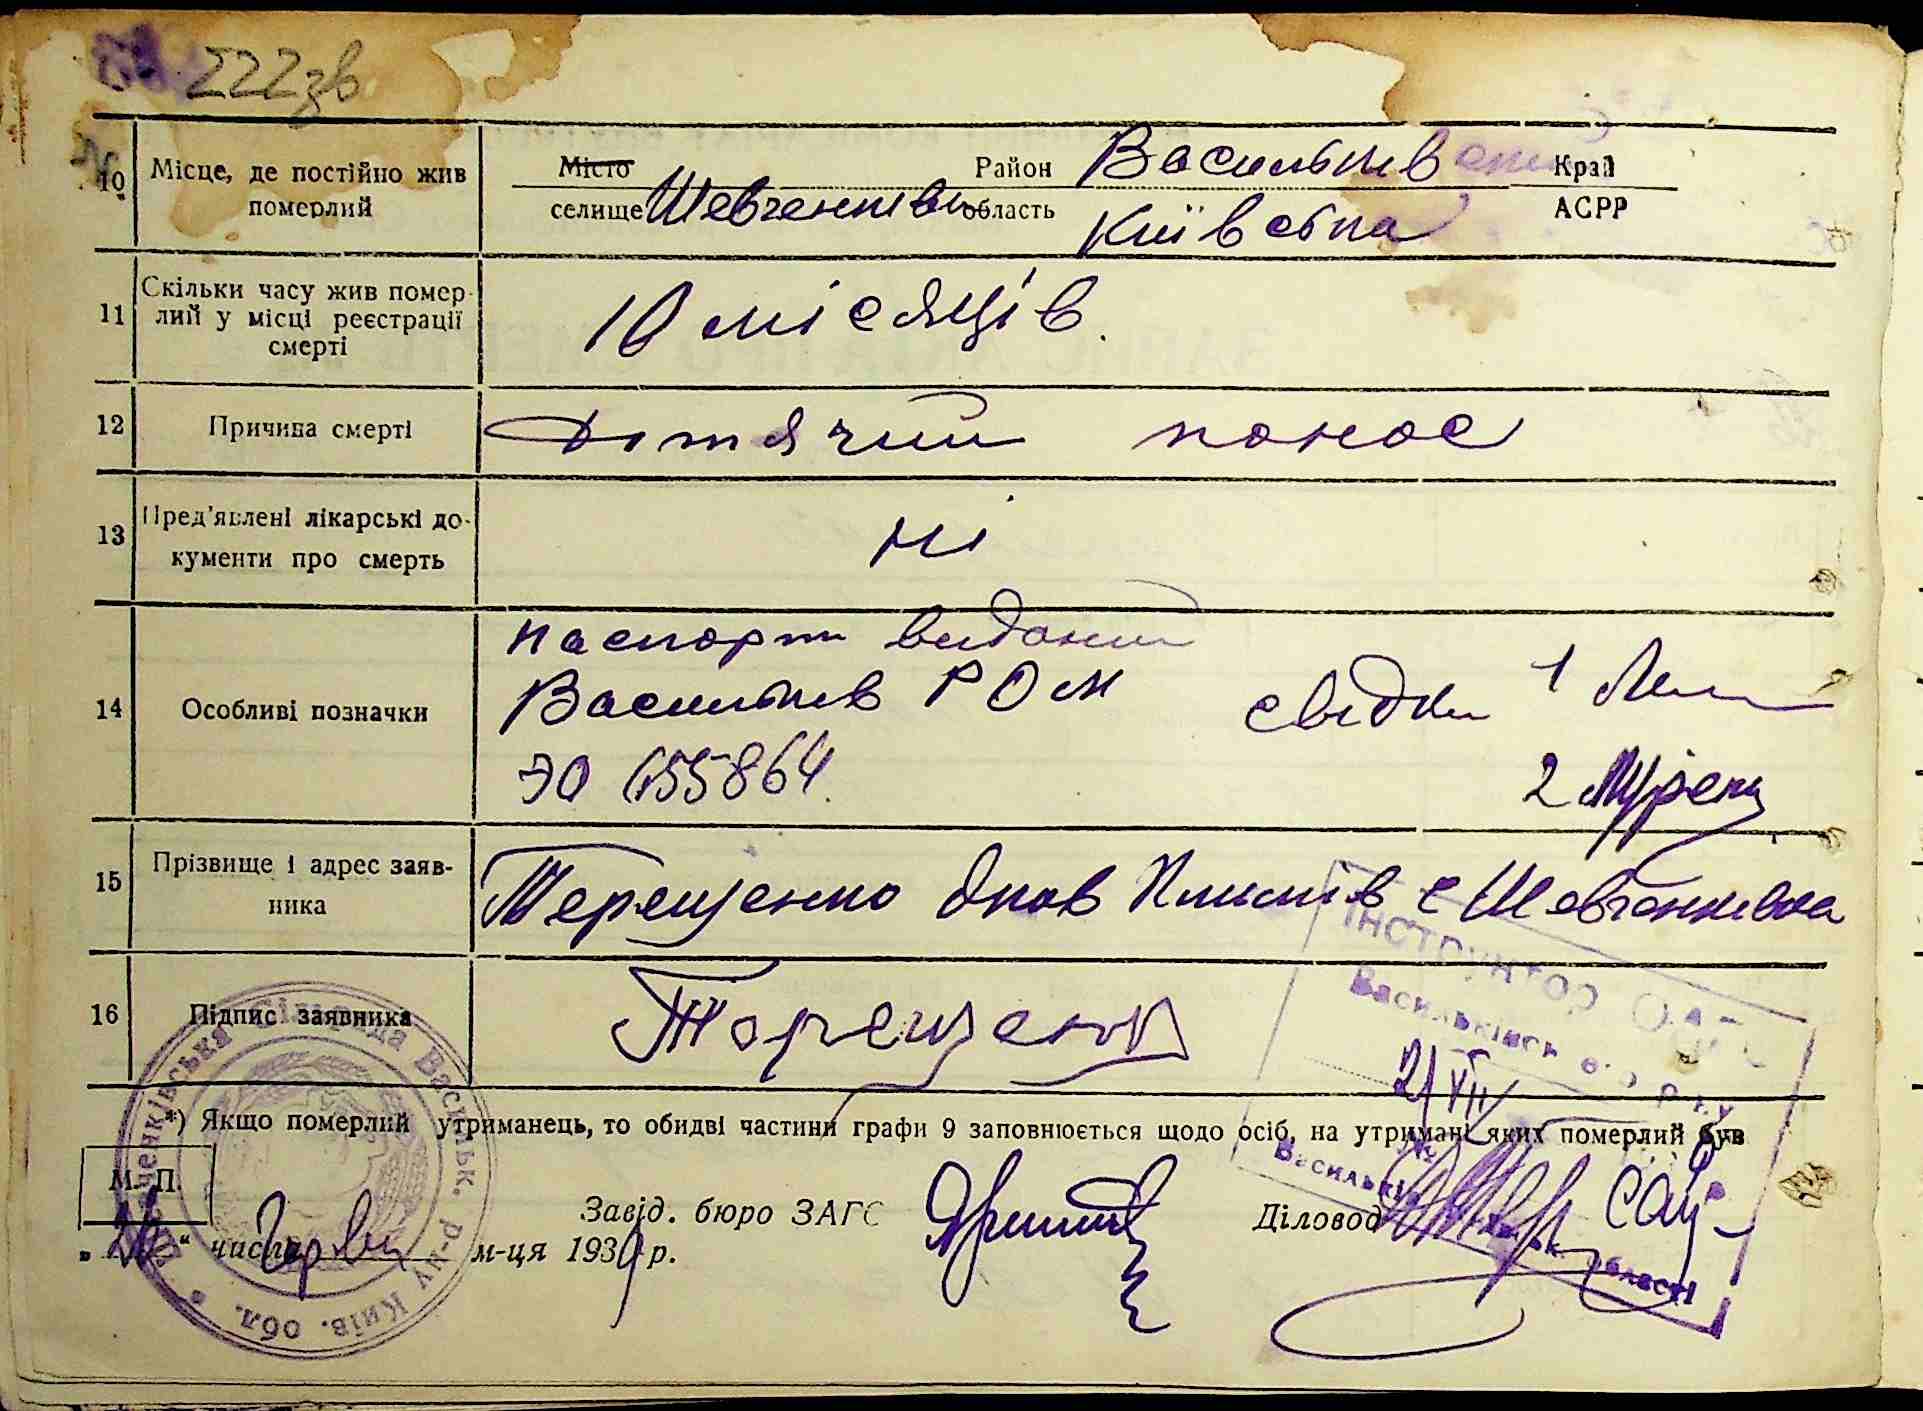 222зв
10 Місце, де постійно жив померлий
Місто Район Васильківський Край
селище Шевченківка область Київська АСРР
11 Скільки часу жив помер-
лий у місці реєстрації
смерті
10 місяців.
12 Причина смерті Дитячий понос
13 Пред'явлені лікарські до-
кументи про смерть
ні
14 Особливі позначки
паспорт виданий
Васильків РОМ
ЭО 655864.
свідки 1
2
15 Прізвище і адрес заяв-
ника
Терещенко Яков с Шевченківка
16 Підпис заявника Терещенко
*) Якщо померлий утриманець, то обидві частини графи 9 заповнюється щодо осіб, на утримані яких померлий був
М. П.
Завід. бюро ЗАГС Діловод
„ “ числа м-ця 1939 р.
Шевченківська Сільрада Васильк. р-ну Київ. обл.
Інструктор ОАГС
Васильківськ ого р-ну
21/VII